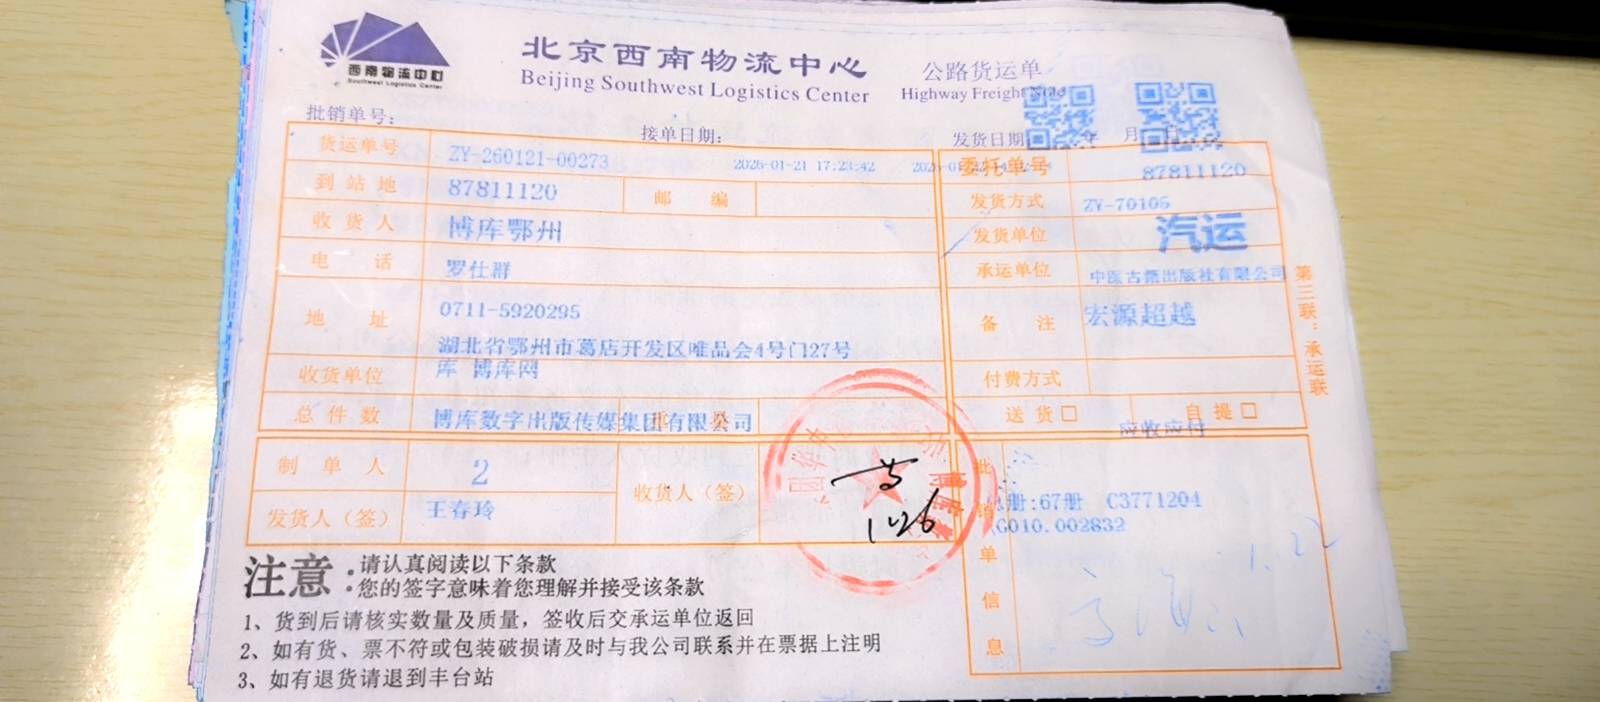 西南物流中心
Southwest Logistics Center
北京西南物流中心
Beijing Southwest Logistics Center
公路货运单
Highway Freight Note
批销单号:
接单日期:
发货日期 年 月 日
货运单号 ZY-260121-00273 2026-01-21 17:23:42
委托单号 87811120
到站地 87811120 邮 编
发货方式 ZY-70105
收货人 博库鄂州
发货单位 汽运
电 话 罗仕群
承运单位 中医古籍出版社有限公司
地 址 0711-5920295
湖北省鄂州市葛店开发区唯品会4号门27号
库 博库网
备 注 宏源超越
收货单位
付费方式
总件数 博库数字出版传媒集团有限公司
送货□ 自提□
应收应付
制单人 2
收货人（签）
发货人（签） 王春玲
1.26
批销单信息
册:67册 C3771204
G010.002832
1.22
第三联：承运联
注意:
请认真阅读以下条款
您的签字意味着您理解并接受该条款
1、货到后请核实数量及质量，签收后交承运单位返回
2、如有货、票不符或包装破损请及时与我公司联系并在票据上注明
3、如有退货请退到丰台站